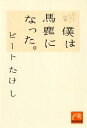 僕は
馬鹿に
なった。
ビートたけし